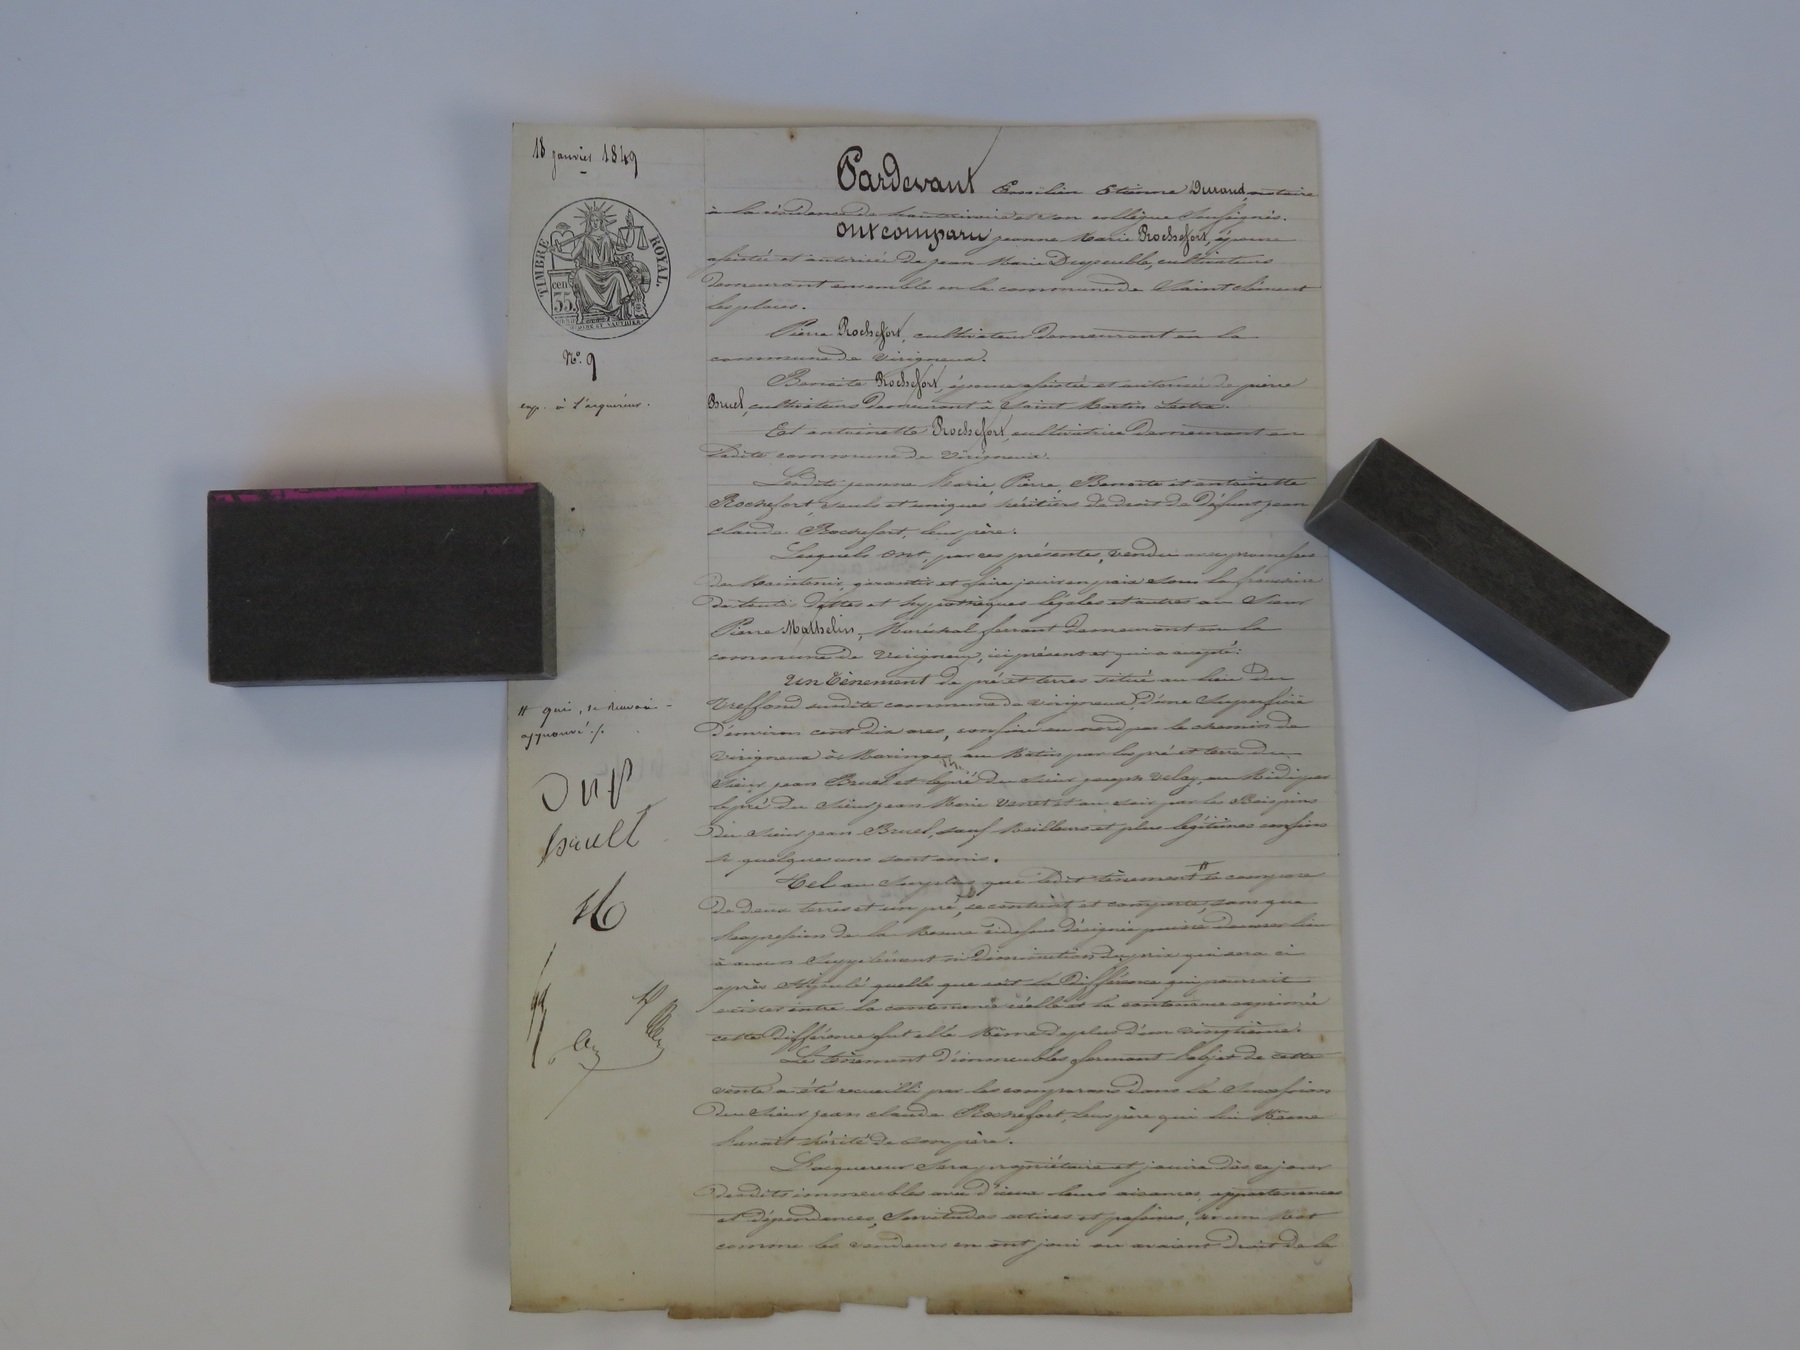 18 janvier 1849
TIMBRE ROYAL.
cen
35.
N° 9
exp. à l'acquéreur.
Pardevant Etienne Durand, notaire
à la résidence de et son collègue soussignés.
Ont comparu jeanne Marie Rochefort, épouse
assistée et autorisée de jean Marie Dupeuble, cultivateurs
demeurant ensemble en la commune de Saint Clément
les places.
Pierre Rochefort, cultivateur demeurant en la
commune de Virigneux.
Benoite Rochefort, épouse assistée et autorisée de pierre
Bruel, cultivateurs demeurant à Saint Martin Lestra.
Et antoinette Rochefort, cultivatrice demeurant en
ladite commune de Virigneux.
Lesdits jeanne Marie, Pierre, Benoite et antoinette
Rochefort, seuls et uniques héritiers de droit de défunt jean
claude Rochefort, leur père.
Lesquels ont, par ces présentes, vendu avec promesse
de Maintenir, garantir et faire jouir en paix sous la franchise
de toutes dettes et hypothèques légales et autres au Sieur
Pierre Mathelin, Maréchal ferrant demeurant en la
commune de Virigneux, ici présent et qui a accepté:
Un tènement de pré et terres situé au lieu du
Treffond susdite commune de Virigneux, d'une Superficie
d'environ cent dix ares, confiné au nord par le chemin de
virigneux à Maringes, au Matin par les pré et terre du
Sieur jean Bruel et le pré du Sieur joseph Velay, au Midi par
le pré du Sieur jean Marie Venet et au soir par les Bois pins
du Sieur jean Bruel, sauf Meilleurs et plus légitimes confins
si quelques uns sont omis.
Tel au Surplus que ledit tènement # se compose
de deux terres et un pré, se contient et comporte, sans que
l'expression de la Mesure cidessus désignée puisse donner lieu
à aucun Supplément ni diminution du prix qui sera ci
après Stipulé quelle que soit la différence qui pourrait
exister entre la contenance réelle et la contenance exprimée
cette différence fut elle Même de plus d'un vingtième.
Le tènement d'immeubles formant l'objet de cette
vente a été recueilli par les comparans dans la Succession
du Sieur jean claude Rochefort, leur père qui lui Même
l'avait hérité de son père.
L'acquéreur Sera propriétaire et jouira dès ce jour
desdits immeubles avec d'iceux leurs aisances, appartenances
et dépendances, Servitudes actives et passives, en un Mot
comme les vendeurs en ont joui ou avaient droit de le
# qui, ce renvoi
approuvé ./.
bruell